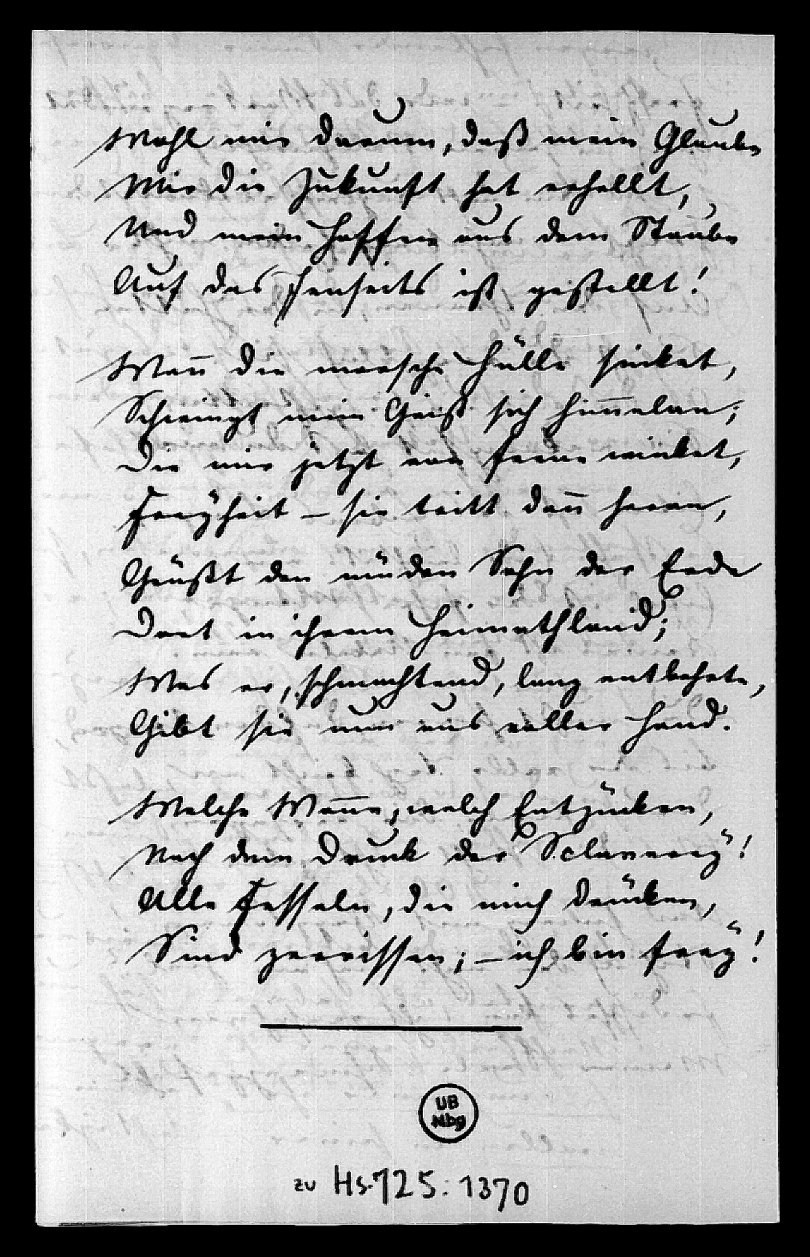 Wohl mir darum, daß mein Glaube
Mir die Zukunft hat erhellt,
Und mein Hoffen aus dem Staube
Auf das Jenseits ist gestellt!
Wen̄ die morsche Hülle sinket,
Schwingt mein Geist sich him̄elan;
Die mir jetzt von ferne winket,
Freÿheit – sie tritt dan̄ heran,
Grüßt den müden Sohn der Erde
Dort in ihrem Heimathland;
Was er, schmachtend, lang entbehrte,
Gibt sie nun aus voller Hand.
Welche Won̄e, welch Entzücken,
Nach dem Druck der Sclavereÿ!
Alle Fesseln, die mich drücken,
Sind zerrissen; – ich bin freÿ!
UB
Mbg
zu Hs. 725: 1370